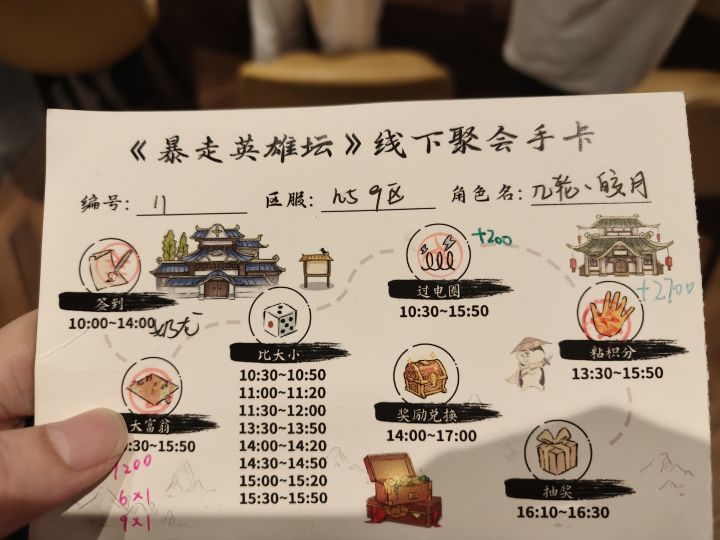 《暴走英雄坛》线下聚会手卡
编号: 11 区服: h5 9区 角色名: 几轮、皎月
签到
10:00~14:00
奶龙
过电圈
+200
10:30~15:50
粘积分
+2700
13:30~15:50
比大小
10:30~10:50
11:00~11:20
11:30~12:00
13:30~13:50
14:00~14:20
14:30~14:50
15:00~15:20
15:30~15:50
大富翁
:30~15:50
1200
6x1
9x1
奖励兑换
14:00~17:00
抽奖
16:10~16:30